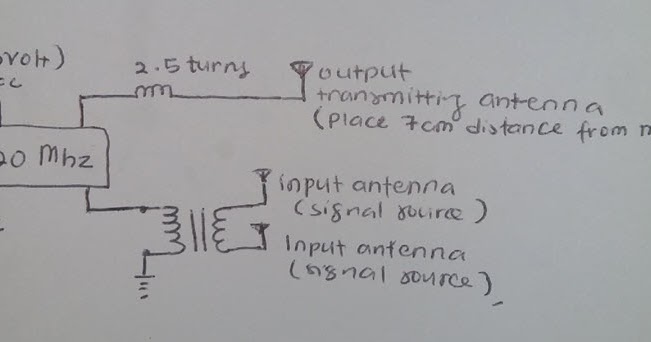 volt)
2.5 turns
output
transmitting antenna
(place 7cm distance from
0 Mhz
input antenna
(signal source)
Input antenna
(signal source)